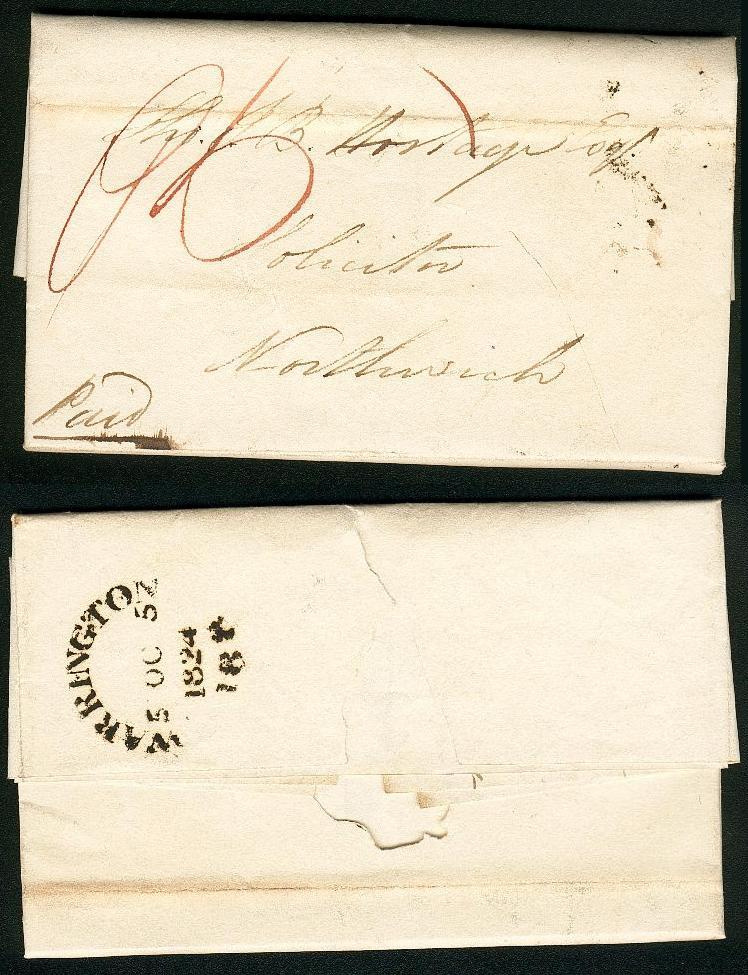 J B Hostage Esqr
Solicitor
Northwich
Paid
WARRINGTON
5 OC 5
1824
184